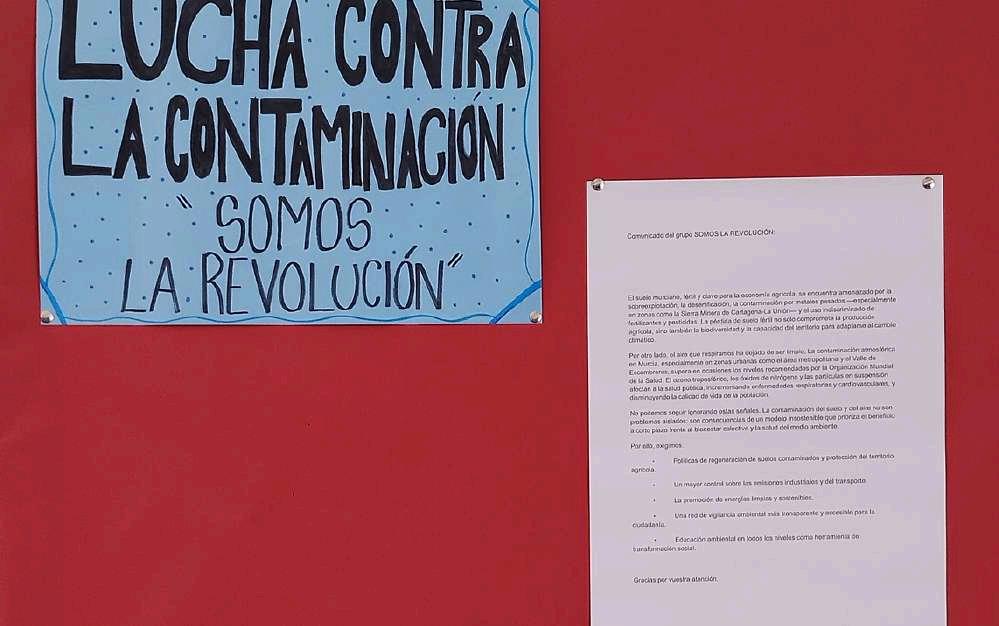 LUCHA CONTRA
LA CONTAMINACIÓN
"SOMOS
LA REVOLUCIÓN"
Comunicado del grupo SOMOS LA REVOLUCIÓN:
El suelo murciano, fértil y clave para la economía agrícola, se encuentra amenazado por la
sobreexplotación, la desertificación, la contaminación por metales pesados —especialmente
en zonas como la Sierra Minera de Cartagena-La Unión— y el uso indiscriminado de
fertilizantes y pesticidas. La pérdida de suelo fértil no solo compromete la producción
agrícola, sino también la biodiversidad y la capacidad del territorio para adaptarse al cambio
climático.
Por otro lado, el aire que respiramos ha dejado de ser limpio. La contaminación atmosférica
en Murcia, especialmente en zonas urbanas como el área metropolitana y el Valle de
Escombreras, supera en ocasiones los niveles recomendados por la Organización Mundial
de la Salud. El ozono troposférico, los óxidos de nitrógeno y las partículas en suspensión
afectan a la salud pública, incrementando enfermedades respiratorias y cardiovasculares, y
disminuyendo la calidad de vida de la población.
No podemos seguir ignorando estas señales. La contaminación del suelo y del aire no son
problemas aislados: son consecuencias de un modelo insostenible que prioriza el beneficio
a corto plazo frente al bienestar colectivo y la salud del medio ambiente.
Por ello, exigimos:
• Políticas de regeneración de suelos contaminados y protección del territorio
agrícola.
• Un mayor control sobre las emisiones industriales y del transporte.
• La promoción de energías limpias y sostenibles.
• Una red de vigilancia ambiental más transparente y accesible para la
ciudadanía.
• Educación ambiental en todos los niveles como herramienta de
transformación social.
Gracias por vuestra atención.